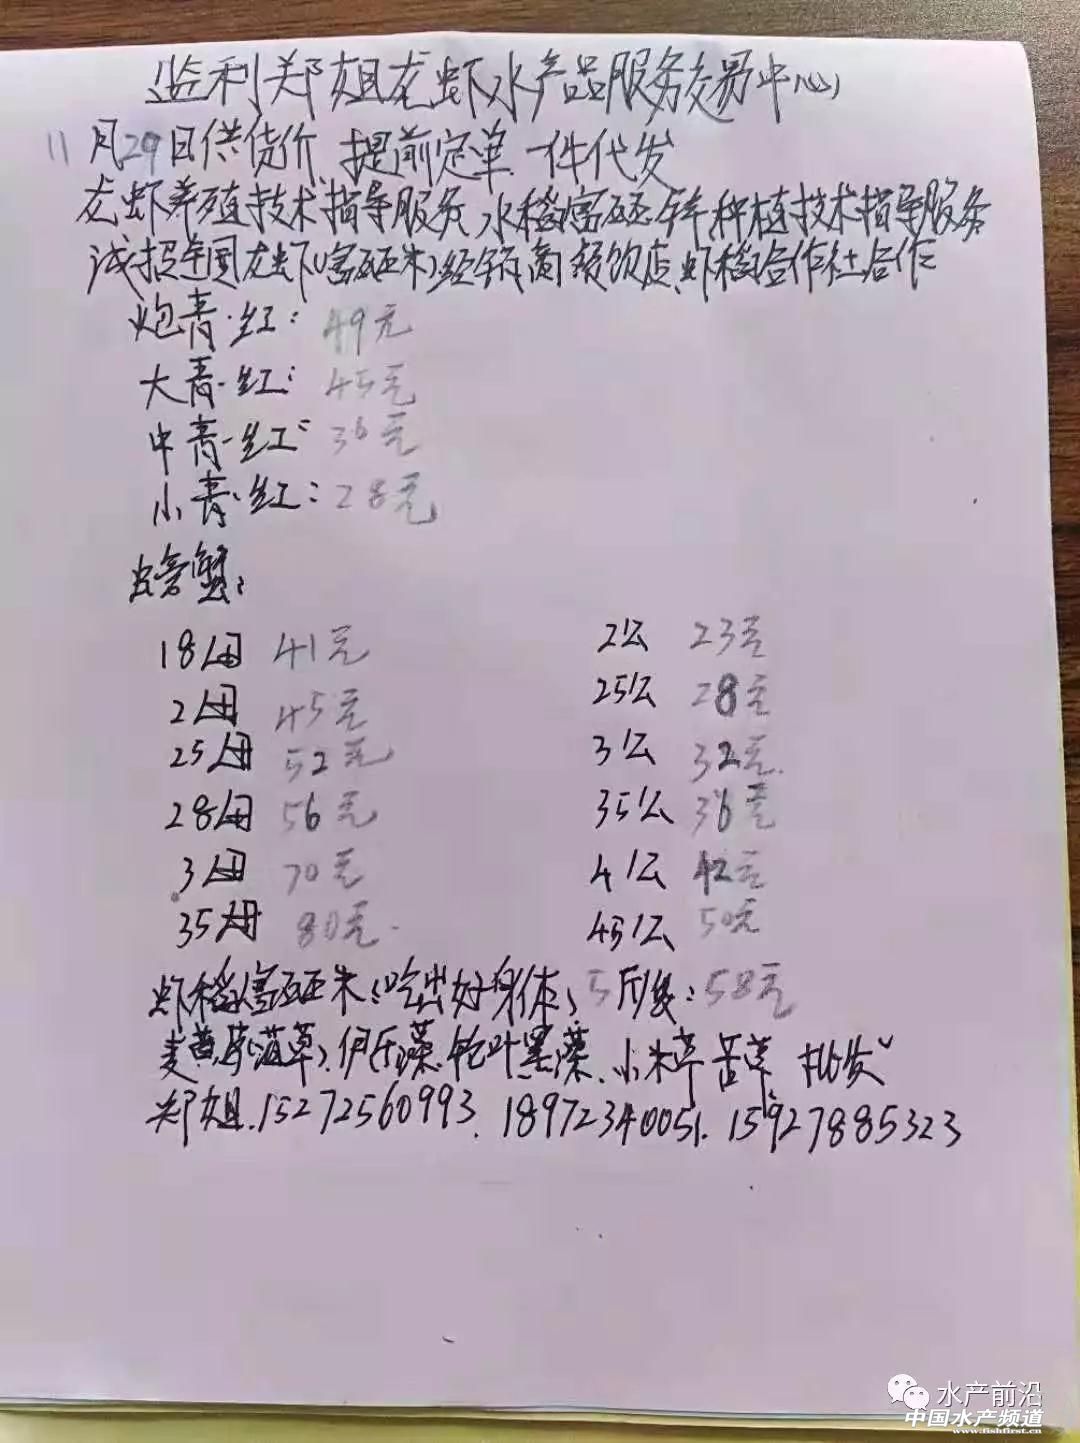 监利郑姐龙虾水产品服务交易中心
11月29日供货价、提前定单、一件代发
龙虾养殖技术指导服务、水稻富硒锌种植技术指导服务
诚招全国龙虾(富硒米)经销商、餐饮店、虾稻合作社合作
炮青·红: 49元
大青·红: 45元
中青·红: 36元
小青·红: 28元
螃蟹:
18母 41元 2公 23元
2母 45元 25公 28元
25母 52元 3公 32元
28母 56元 35公 36元
3母 70元 4公 42元
35母 80元 45公 50元
虾稻富硒米(吃出好身体) 5斤/袋: 58元
麦黄草(菹草)、伊乐藻、轮叶黑藻、小米草 苦草 批发
郑姐.15272560993. 18972340051. 15927885323
水产前沿
中国水产频道
www.fishfirst.cn